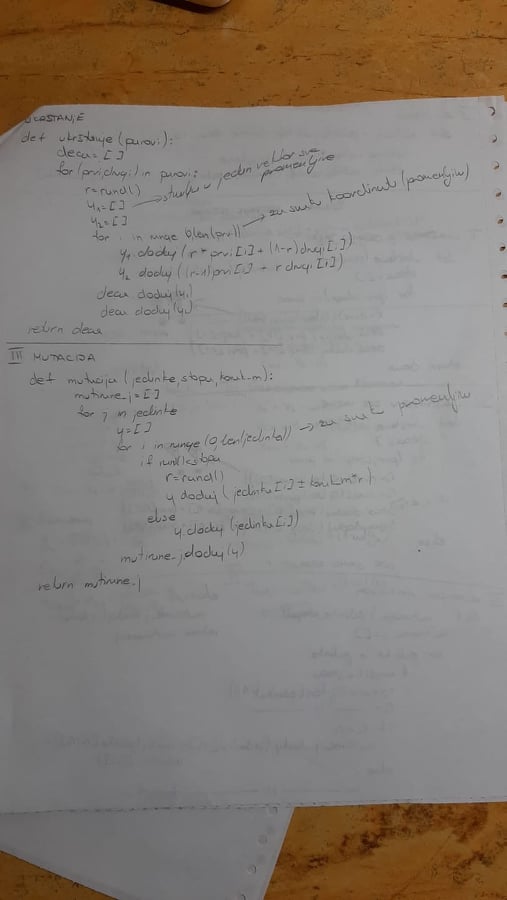 UKRŠTANJE
def ukrštanje (parovi):
deca = [ ]
for (prvi, drugi) in parovi:
r = rand()
y₁ = [ ] → u jedan vektor sve promenljive
y₂ = [ ]
for i in range 0, len(prvi)) → za svaku koordinatu (promenljivu)
y₁ dodaj (r * prvi [i] + (1-r) drugi [i])
y₂ dodaj ((r-1) prvi [i] + r drugi [i])
deca dodaj (y₁)
deca dodaj (y₂)
return deca
III MUTACIJA
def mutacija (jedinke, stopa, konst_m):
mutirane_j = [ ]
for j in jedinke
y = [ ]
for i in range (0, len(jedinka)) → za svaku promenljivu
if rand() < stopa
r = rand()
y dodaj (jedinka [i] ± konst_m * r)
else
y dodaj (jedinka [i])
mutirane_j dodaj (y)
return mutirane_j